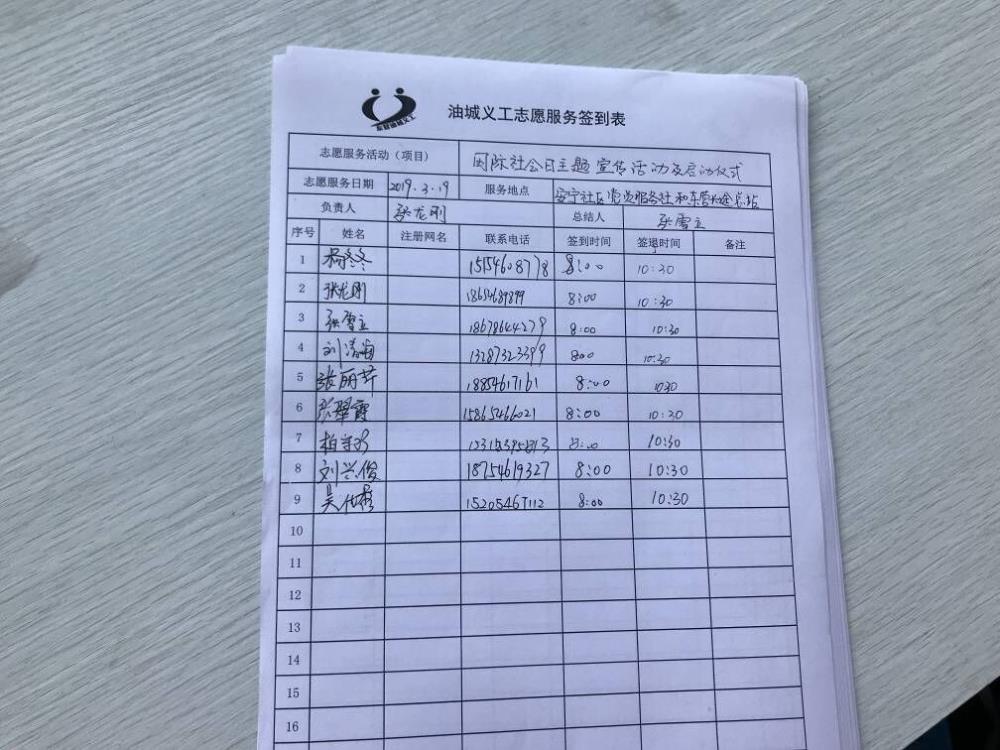 东营油城义工
油城义工志愿服务签到表
志愿服务活动（项目） 国际社会日主题宣传活动及启动仪式
志愿服务日期 2019.3.19 服务地点 安宁社区党员服务社和东营长途总站
负责人 张龙刚 总结人 张雪立
序号 姓名 注册网名 联系电话 签到时间 签退时间 备注
1 杨冬冬 15154608778 8:00 10:30
2 张龙刚 18654689899 8:00 10:30
3 张雪立 18678644279 8:00 10:30
4 刘清 13287323399 800 10:30
5 张丽芹 18854617161 8:00 1030
6 张翠霞 15865466021 8:00 10:30
7 8:00 10:30
8 刘兴俊 18754619327 8:00 10:30
9 吴 15205467112 8:00 10:30
10
11
12
13
14
15
16